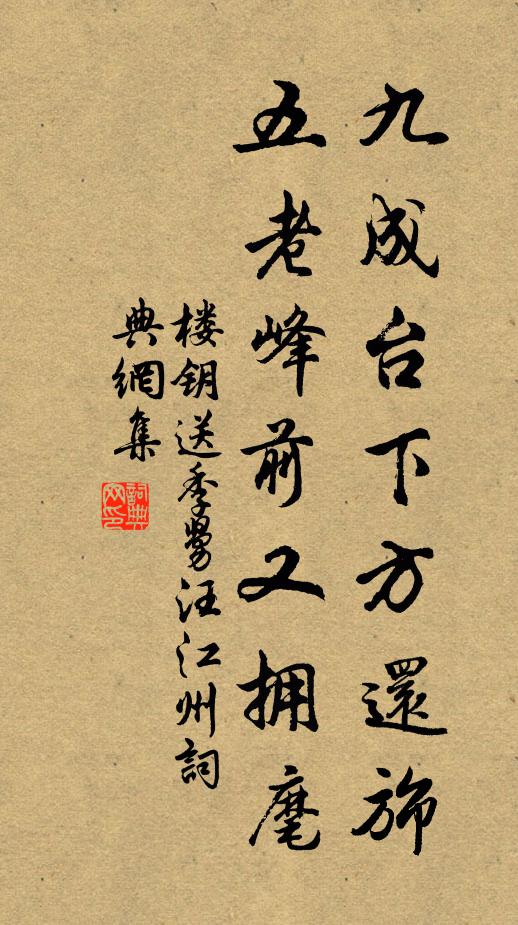 九成台下方還旆
五老峰前又拥麾
楼钥送季舅汪江州詞
典網集
詞典
网印